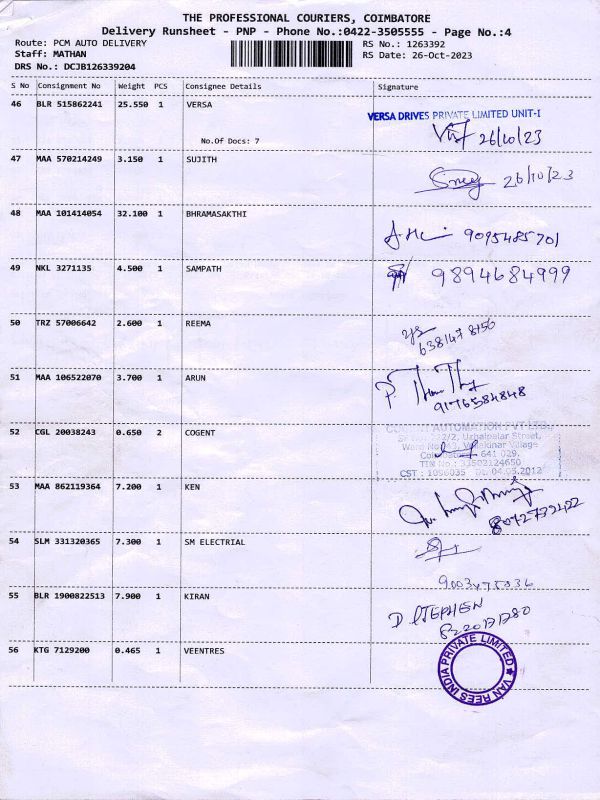 THE PROFESSIONAL COURIERS, COIMBATORE
Delivery Runsheet - PNP - Phone No.:0422-3505555 - Page No.:4
Route: PCM AUTO DELIVERY
RS No.: 1263392
Staff: MATHAN
RS Date: 26-Oct-2023
DRS No.: DCJB126339204
S No Consignment No Weight PCS Consignee Details Signature
46 BLR 515862241 25.550 1 VERSA
VERSA DRIVES PRIVATE LIMITED UNIT-I
26/10/23
No.Of Docs: 7
47 MAA 570214249 3.150 1 SUJITH
26/10/23
48 MAA 101414054 32.100 1 BHRAMASAKTHI
9095485701
49 NKL 3271135 4.500 1 SAMPATH
9894684999
50 TRZ 57006642 2.600 1 REEMA
638147 8156
51 MAA 106522070 3.700 1 ARUN
9176584848
52 CGL 20038243 0.650 2 COGENT
AUTOMATION PVT LTD.,
2/2, Uzhaipalar Street,
Village
641 029,
TIN No.: 33502124650
CST : 1096035 Dt. 04.05.2012
53 MAA 862119364 7.200 1 KEN
8072772422
54 SLM 331320365 7.300 1 SM ELECTRIAL
55 BLR 1900822513 7.900 1 KIRAN
D STEPHEN
56 KTG 7129200 0.465 1 VEENTRES
VAN REES INDIA PRIVATE LIMITED